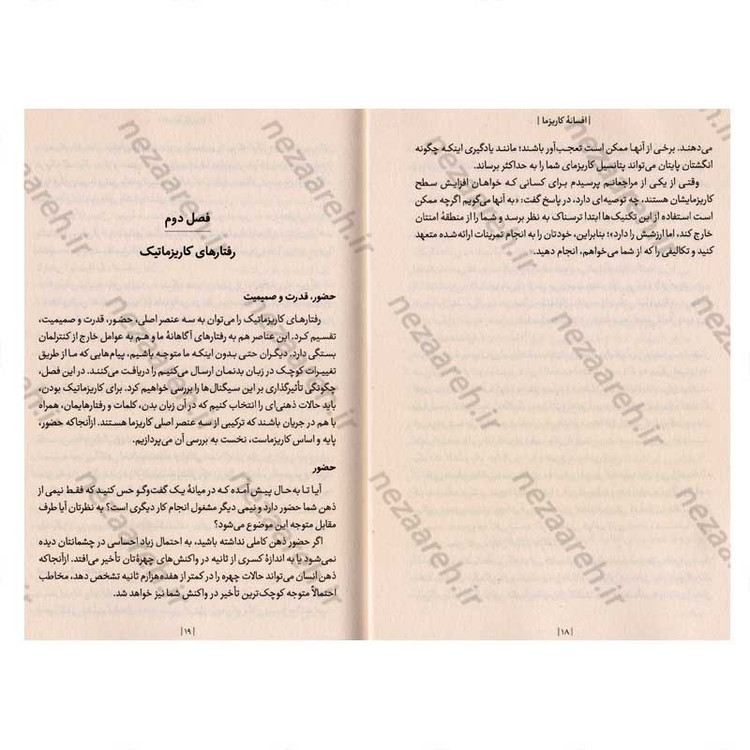 | افسانهٔ کاریزما |
می‌دهند. برخی از آنها ممکن است تعجب‌آور باشند؛ مانند یادگیری اینکه چگونه
انگشتان پایتان می‌تواند پتانسیل کاریزمای شما را به حداکثر برساند.
وقتی از یکی از مراجعانم پرسیدم برای کسانی که خواهان افزایش سطح
کاریزمایشان هستند، چه توصیه‌ای دارد، در پاسخ گفت: «به آنها می‌گویم اگرچه ممکن
است استفاده از این تکنیک‌ها ابتدا ترسناک به نظر برسد و شما را از منطقهٔ امنتان
خارج کند، اما ارزشش را دارد»؛ بنابراین، خودتان را به انجام تمرینات ارائه‌شده متعهد
کنید و تکالیفی را که از شما می‌خواهم، انجام دهید.
| ۱۸ |
فصل دوم
رفتارهای کاریزماتیک
حضور، قدرت و صمیمیت
رفتارهای کاریزماتیک را می‌توان به سه عنصر اصلی، حضور، قدرت و صمیمیت،
تقسیم کرد. این عناصر هم به رفتارهای آگاهانهٔ ما و هم به عوامل خارج از کنترلمان
بستگی دارد. دیگران حتی بدون اینکه ما متوجه باشیم، پیام‌هایی که ما از طریق
تغییرات کوچک در زبان بدنمان ارسال می‌کنیم را دریافت می‌کنند. در این فصل،
چگونگی تأثیرگذاری بر این سیگنال‌ها را بررسی خواهیم کرد. برای کاریزماتیک بودن،
باید حالات ذهنی‌ای را انتخاب کنیم که در آن زبان بدن، کلمات و رفتارهایمان، همراه
با هم در جریان باشند که ترکیبی از سه عنصر اصلی کاریزما هستند. ازآنجاکه حضور،
پایه و اساس کاریزماست، نخست به بررسی آن می‌پردازیم.
حضور
آیا تا به‌حال پیش آمده که در میانهٔ یک گفت‌وگو حس کنید که فقط نیمی از
ذهن شما حضور دارد و نیمی دیگر مشغول انجام کار دیگری است؟ به نظرتان آیا طرف
مقابل متوجه این موضوع می‌شود؟
اگر حضور ذهن کاملی نداشته باشید، به احتمال زیاد احساسی در چشمانتان دیده
نمی‌شود یا به اندازهٔ کسری از ثانیه در واکنش‌های چهره‌تان تأخیر می‌افتد. ازآنجاکه
ذهن انسان می‌تواند حالات چهره را در کمتر از هفده‌هزارم ثانیه تشخص دهد، مخاطب
احتمالاً متوجه کوچک‌ترین تأخیر در واکنش شما نیز خواهد شد.
| ۱۹ |
nezaareh.ir
nezaareh.ir
nezaareh.ir
nezaareh.ir
nezaareh.ir
nezaareh.ir
nezaareh.ir